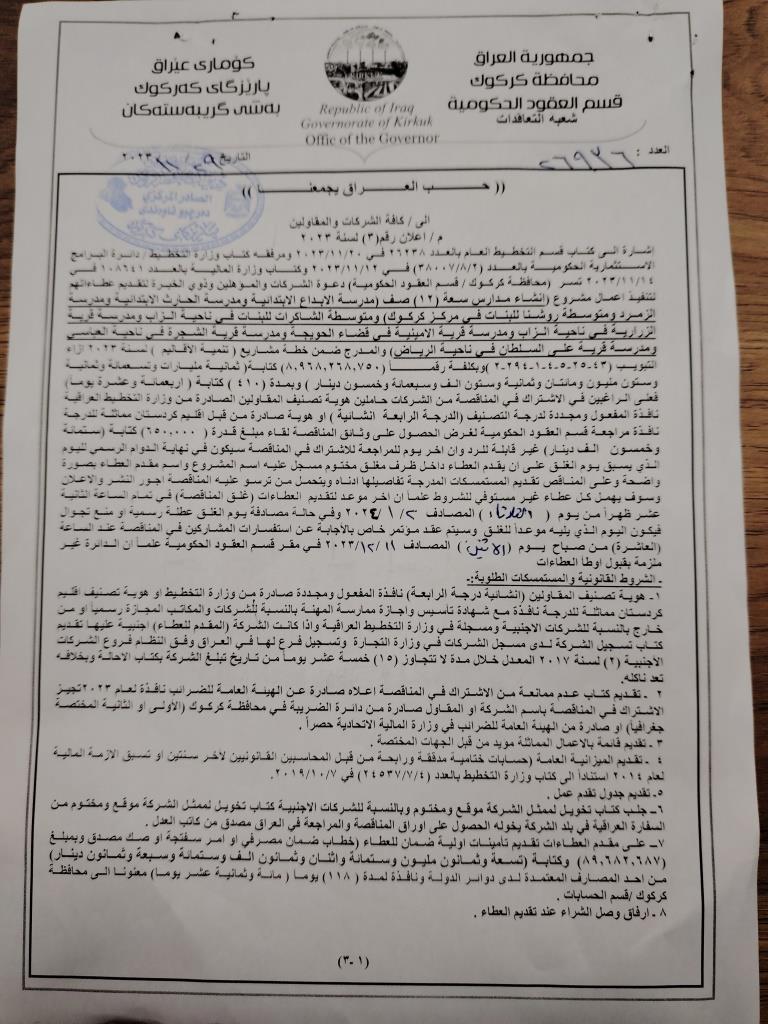 جمهورية العراق
محافظة كركوك
قسم العقود الحكومية
شعبة التعاقدات
كۆماری عێراق
پارێزگای كەركوك
بەشی گرێبەستەكان
Republic of Iraq
Governorate of Kirkuk
Office of the Governor
العدد : ٢٦٩٣٦
التاريخ ٢٩/ ١١/ ٢٠٢٣
(( حب العراق يجمعنا ))
الى / كافة الشركات والمقاولين
م / اعلان رقم(٣) لسنة ٢٠٢٣
إشارة الى كتاب قسم التخطيط العام بالعدد ٢٦٢٣٨ في ٢٠٢٣/١١/٢٠ ومرفقه كتاب وزارة التخطيط / دائرة البرامج
الاستثمارية الحكومية بالعدد (٣٨٠٠٧/٨/٢) في ٢٠٢٣/١١/١٢ وكتاب وزارة المالية بالعدد ١٠٨٦٤١ في
٢٠٢٣/١١/١٤ تسر (محافظة كركوك / قسم العقود الحكومية) دعوة الشركات والمؤهلين وذوي الخبرة لتقديم عطاءاتهم
لتنفيذ اعمال مشروع (إنشاء مدارس سعة (١٢) صف (مدرسة الابداع الابتدائية ومدرسة الحارث الابتدائية ومدرسة
الزمرد ومتوسطة روشنا للبنات في مركز كركوك) ومتوسطة الشاكرات للبنات في ناحية الزاب ومدرسة قرية
الزرارية في ناحية الزاب ومدرسة قرية الامينية في قضاء الحويجة ومدرسة قرية الشجرة في ناحية العباسي
ومدرسة قرية على السلطان في ناحية الرياض) والمدرج ضمن خطة مشاريع ( تنمية الأقاليم ) لسنة ٢٠٢٣ ازاء
التبويب (٤٣-٢٥-٥-٤-١-٢٩٤-٢) وبكلفة رقماً (٨,٩٦٨,٢٦٨,٧٥٠) كتابة( ثمانية مليارات وتسعمائة وثمانية
وستون مليون ومائتان وثمانية وستون الف وسبعمائة وخمسون دينار ) وبمدة (٤١٠) كتابة ( اربعمائة وعشرة يوما)
فعلى الراغبين في الاشتراك في المناقصة من الشركات حاملين هوية تصنيف المقاولين الصادرة من وزارة التخطيط العراقية
نافذة المفعول ومجددة لدرجة التصنيف (الدرجة الرابعة انشائية ) او هوية صادرة من قبل اقليم كردستان مماثلة للدرجة
نافذة مراجعة قسم العقود الحكومية لغرض الحصول على وثائق المناقصة لقاء مبلغ قدرة ( ٦٥٠,٠٠٠) كتابة (ستمائة
وخمسون الف دينار) غير قابلة للرد وان اخر يوم للمراجعة للاشتراك في المناقصة سيكون في نهاية الدوام الرسمي لليوم
الذي يسبق يوم الغلق على ان يقدم العطاء داخل ظرف مغلق مختوم مسجل عليه اسم المشروع واسم مقدم العطاء بصورة
واضحة وعلى المناقص تقديم المستمسكات المدرجة تفاصيلها ادناه ويتحمل من ترسو عليه المناقصة اجور النشر والاعلان
وسوف يهمل كل عطاء غير مستوفي للشروط علماً ان اخر موعد لتقديم العطاءات (غلق المناقصة) في تمام الساعة الثانية
عشر ظهراً من يوم ( الثلاثاء ) المصادف ٢ / ١ /٢٠٢٤ وفي حالة مصادفة يوم الغلق عطلة رسمية او منع تجوال
فيكون اليوم الذي يليه موعداً للغلق وسيتم عقد مؤتمر خاص بالأجابة عن استفسارات المشاركين في المناقصة عند الساعة
(العاشرة) من صباح يوم (الاثنين) المصادف ١١ /١٢/ ٢٠٢٣ في مقر قسم العقود الحكومية علماً ان الدائرة غير
ملزمة بقبول اوطأ العطاءات
- الشروط القانونية والمستمسكات الطلوبة:-
١- هوية تصنيف المقاولين (إنشائية درجة الرابعة) نافذة المفعول ومجددة صادرة من وزارة التخطيط او هوية تصنيف اقليم
كردستان مماثلة للدرجة نافذة مع شهادة تأسيس واجازة ممارسة المهنة بالنسبة للشركات والمكاتب المجازة رسمياً او من
خارج بالنسبة للشركات الاجنبية ومسجلة في وزارة التخطيط العراقية واذا كانت الشركة (المقدم للعطاء) اجنبية عليها تقديم
كتاب تسجيل الشركة لدى مسجل الشركات في وزارة التجارة وتسجيل فرع لها في العراق وفق النظام فروع الشركات
الأجنبية (٢) لسنة ٢٠١٧ المعدل خلال مدة لا تتجاوز (١٥) خمسة عشر يوماً من تاريخ تبلغ الشركة بكتاب الاحالة وبخلافه
تعد ناكله.
٢ - تقديم كتاب عدم ممانعة من الاشتراك في المناقصة اعلاه صادرة عن الهيئة العامة للضرائب نافذة لعام ٢٠٢٣تجيز
الاشتراك في المناقصة باسم الشركة او المقاول صادرة من دائرة الضريبة في محافظة كركوك (الأولى او الثانية المختصة
جغرافياً) او صادرة من الهيئة العامة للضرائب في وزارة المالية الاتحادية حصراً .
٣ - تقديم قائمة بالاعمال المماثلة مويد من قبل الجهات المختصة .
٤ - تقديم الميزانية العامة (حسابات ختامية مدققة ورابحة من قبل المحاسبين القانونيين لاخر سنتين او تسبق الازمة المالية
لعام ٢٠١٤ استناداً الى كتاب وزارة التخطيط بالعدد (٢٤٥٣٧/٧/٤) في ٢٠١٩/١٠/٧.
٥- تقديم جدول تقدم عمل .
٦ - جلب كتاب تخويل لممثل الشركة موقع ومختوم وبالنسبة للشركات الاجنبية كتاب تخويل لممثل الشركة موقع ومختوم من
السفارة العراقية في بلد الشركة يخوله الحصول على اوراق المناقصة والمراجعة في العراق مصدق من كاتب العدل .
٧- على مقدم العطاءات تقديم تأمينات اولية ضمان للعطاء (خطاب ضمان مصرفي او امر سفتجة او صك مصدق وبمبلغ
(٨٩,٦٨٢,٦٨٧) وكتابة (تسعة وثمانون مليون وستمائة واثنان وثمانون الف وستمائة وسبعة وثمانون دينار)
من احد المصارف المعتمدة لدى دوائر الدولة ونافذة لمدة (١١٨) يوما ( مائة وثمانية عشر يوما) معنونا الى محافظة
كركوك /قسم الحسابات .
٨ - ارفاق وصل الشراء عند تقديم العطاء .
(٣-١)